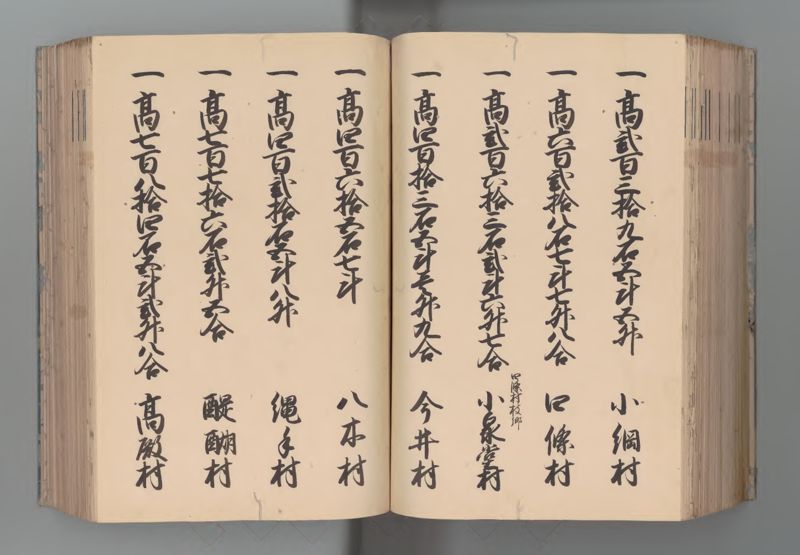 一高弐百三拾九石五斗五升　小綱村
一高六百弐拾八石七斗七升八合　四條村
四條村枝郷
一高弐百六拾三石弐斗六升七合　小泉堂村
一高四百拾三石五斗壱升九合　今井村
一高四百六拾五石七斗　八木村
一高四百弐拾石五斗八升　縄手村
一高七百七拾六石弐升五合　醍醐村
一高七百八拾四石五斗弐升八合　高殿村